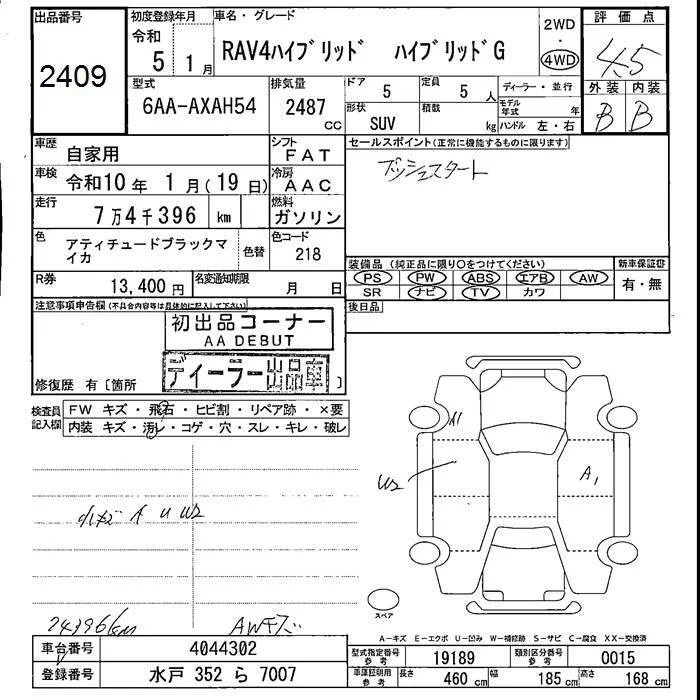 出品番号
2409
初度登録年月
令和
5 1月
車名・グレード
RAV4ハイブリッド ハイブリッドG
2WD
・
4WD
評価点
4.5
外装 内装
B B
型式
6AA-AXAH54
排気量
2487
CC
ドア
5
定員
5人
形状
SUV
積載
kg
ディーラー・並行
モデル年式 年
ハンドル 左・右
車歴
自家用
シフト
FAT
車検
令和10年 1月(19日)
冷房
AAC
走行
7万4千396 km
燃料
ガソリン
色
アティチュードブラックマイカ
色替
色コード
218
R券
13,400円
名変通知期限
月 日
セールスポイント(正常に機能するものに限ります)
プッシュスタート
装備品(純正品に限り○をつけてください)
PS PW ABS エアB AW
SR ナビ TV カワ
新車保証書
有・無
後日品
注意事項申告欄(不具合内容等は具体的に記入して下さい)
初出品コーナー
AA DEBUT
ディーラー出品車
修復歴 有〔箇所 〕
検査員記入欄
FW キズ・飛石・ヒビ割・リペア跡・×要
内装 キズ・汚レ・コゲ・穴・スレ・キレ・破レ
A U U2
74396km
AWキズ
A1
U2
A1
スペア
A-キズ E-エクボ U-凹み W-補修跡 S-サビ C-腐食 XX-交換済
車台番号
4044302
登録番号
水戸 352 ら 7007
型式指定番号
参考
19189
類別区分番号
参考
0015
車庫証明用
参考
長さ
460 cm
幅
185 cm
高さ
168 cm